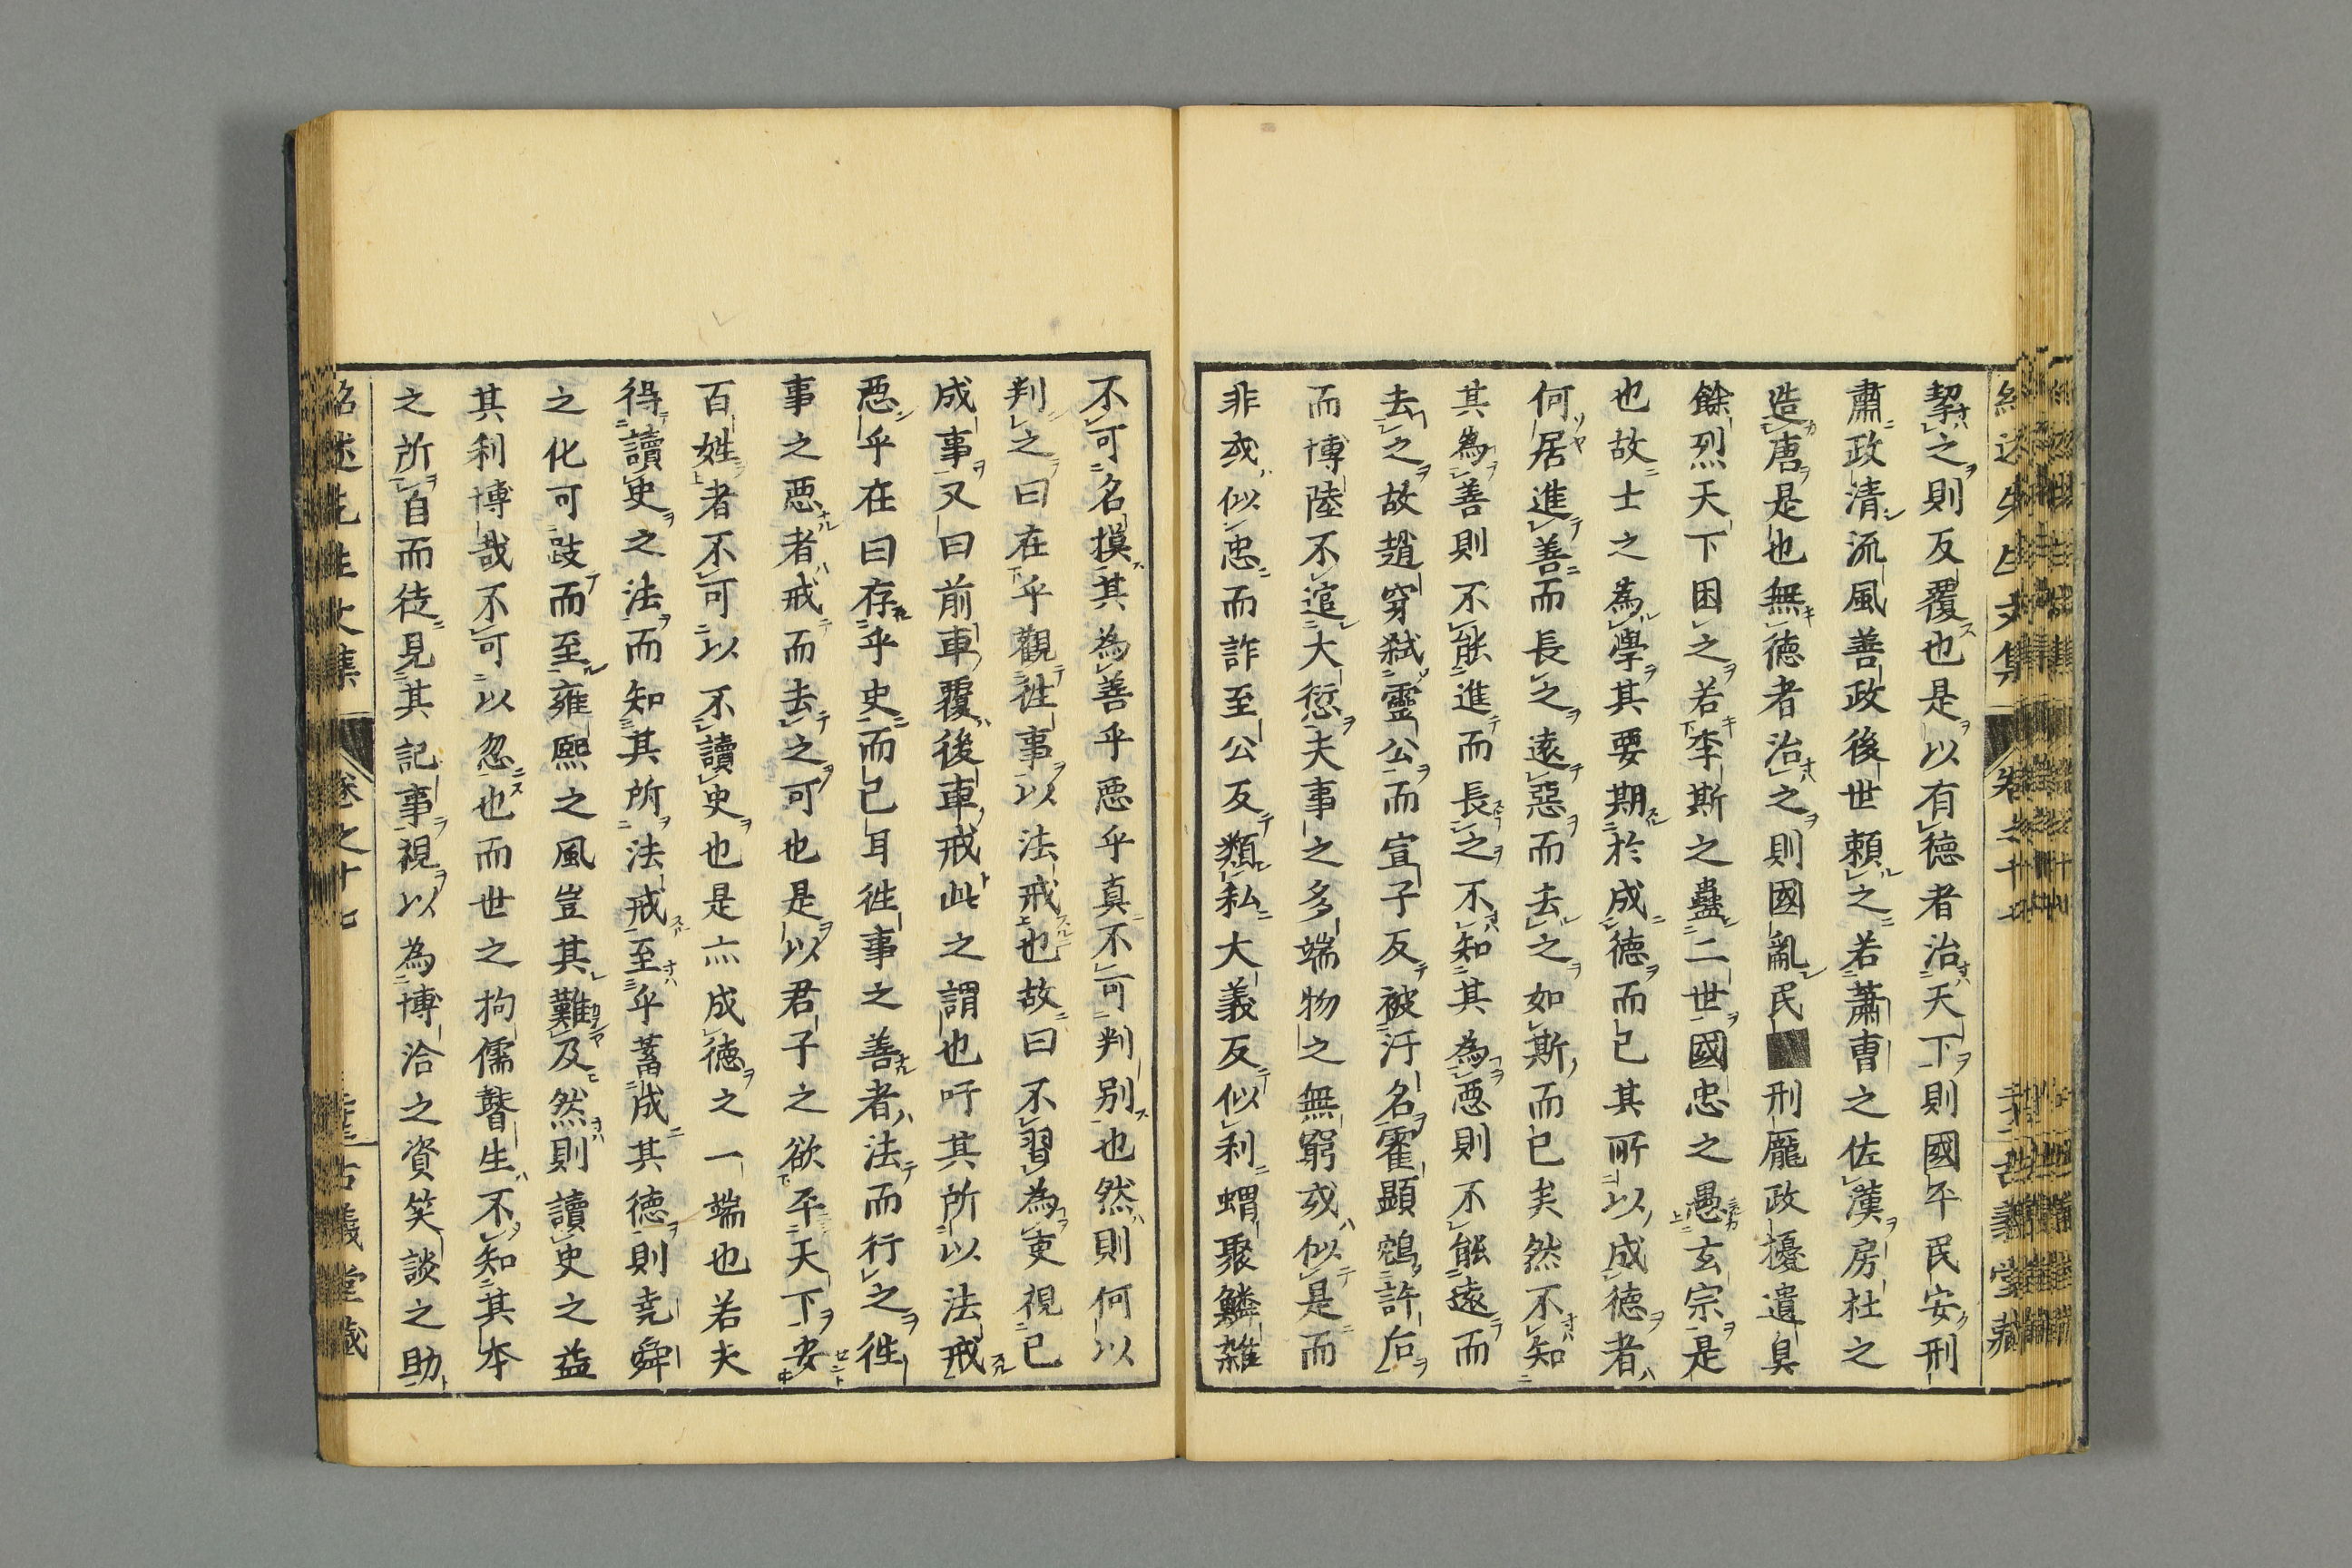 挈之則反覆也是以有徳者治天下則國平民安刑
肅政清流風善政後世頼之若蕭曹之佐漢房杜之
造唐是也無徳者治之則國亂民■刑厖政擾遺臭
餘烈天下困之若李斯之蠱二世國忠之愚玄宗是
也故士之為學其要期於成徳而已其所以成徳者
何居進善而長之遠惡而去之如斯而已矣然不知
其為善則不能進而長之不知其為惡則不能遠而
去之故趙穿弑靈公而宣子反被汙名霍顯鴆許后
而博陸不逭大愆夫事之多端物之無窮或似是而
非或似忠而詐至公反類私大義反似利蝟聚鱗雜
不可名摸其為善乎惡乎真不可判别也然則何以
判之曰在乎觀徃事以法戒也故曰不習為吏視已
成事又曰前車覆後車戒此之謂也吁其所以法戒
惡乎在曰存乎史而已耳徃事之善者法而行之徃
事之惡者戒而去之可也是以君子之欲平天下安
百姓者不可以不讀史也是亦成徳之一端也若夫
得讀史之法而知其所法戒至乎蓄成其徳則堯舜
之化可跂而至雍熙之風豈其難及然則讀史之益
其利博哉不可以忽也而世之拘儒瞽生不知其本
之所自而徒見其記事視以為博洽之資笑談之助
紹述先生文集 卷之十七 古義堂藏